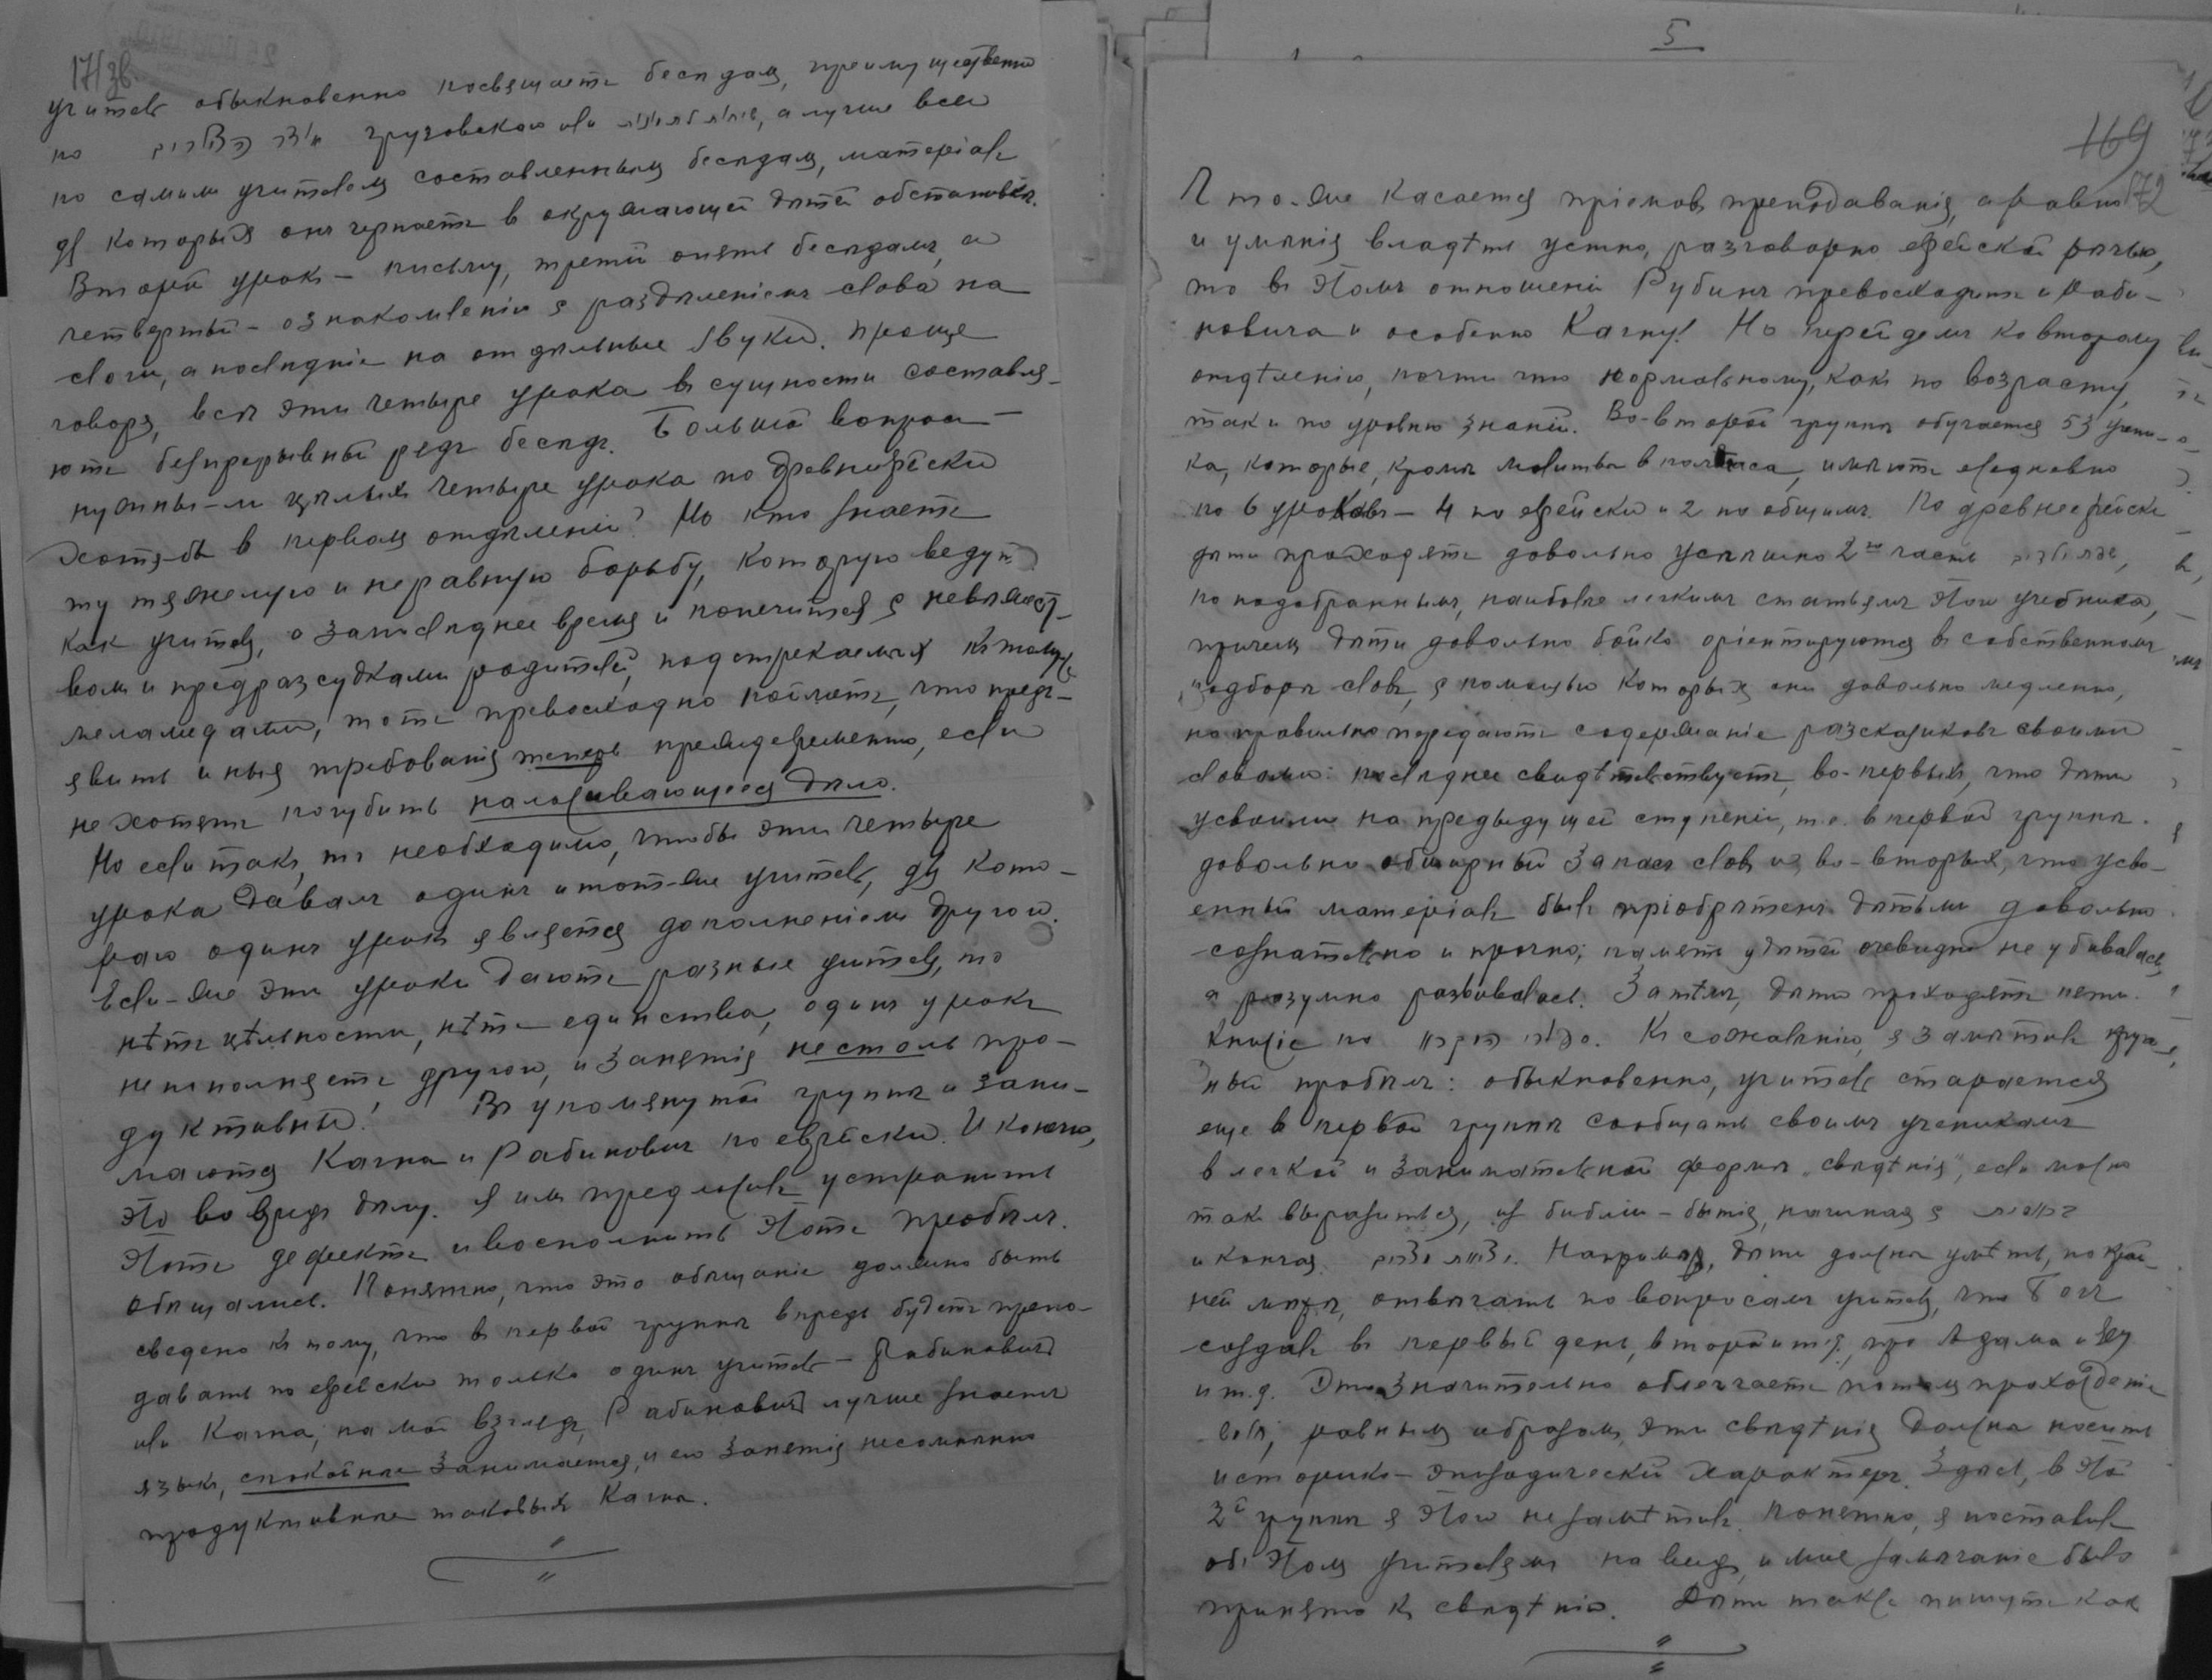 17/36
учитель обыкновенно посвящаетъ бесѣдамъ, преимущественно
по грузовского или , а лучше всего
по самимъ учителемъ составленнымъ бесѣдамъ, матеріалъ
для которыхъ онъ черпаетъ в окружающей дѣтей обстановкѣ.
Второй урокъ – письму, третій опять бесѣдамъ, а
четвертый – ознакомленію с раздѣленіемъ слова на
слоги, а послѣдніе на отдѣльные звуки. Проще
говоря, всѣ эти четыре урока въ сущности составля-
ютъ безпрерывный рядъ бесѣдъ. Большой вопросъ –
нужны-ли цѣлыхъ четыре урока по древнееврейски
хотя-бы в первомъ отдѣленіи? Но кто знаетъ
ту тяжелую и неравную борьбу, которую ведутъ
как учителя, о запослѣднее время и попечителя с невѣжест-
вом и предразсудками родителей, подстрекаемыхъ къ тому-же
меламедами, тотъ превосходно пойметъ, что предъ-
явить иныя требованія теперь преждевременно, если
не хотятъ погубить налаживающееся дѣло.
Но если такъ, то необходимо, чтобы эти четыре
урока давалъ одинъ и тот-же учитель, для кото-
раго одинъ урокъ является дополненіемъ другого.
Если-же эти уроки даютъ разные учителя, то
нѣтъ цѣльности, нѣтъ единства, одинъ урокъ
не пополняетъ другого, и занятія не столь про-
дуктивны! Въ упомянутой группѣ и зани-
маются Качка и Рабиновичъ по еврейски. И конечно,
это во вредъ дѣлу. Я имъ предложилъ устранить
этотъ дефектъ и восполнить этотъ пробѣлъ.
Обѣщались. Понятно, что это обѣщаніе должно быть
сведено къ тому, что въ первой группѣ впредь будетъ препо-
давать по еврейски только одинъ учитель – Рабиновичъ
или Качка; на мой взглядъ, Рабиновичъ лучше знаетъ
языкъ, спокойнѣе занимается, и его занятія несомнѣнно
продуктивнѣе таковыхъ Качка.
5
169
172
Что-же касается пріемовъ преподаванія, а равно
и умѣнія владѣть устно, разговорно еврейской рѣчью,
то въ этомъ отношеніи Рубинъ превосходитъ и Раби-
новича и особенно Качку! Но перейдемъ ко второму
отдѣленію, почти что нормальному, какъ по возрасту,
так и по уровню знаній. Во-второй группѣ обучается 53 учени-
ка, которые, кромѣ молитвы в полчаса, имѣютъ ежедневно
по 6 уроковъ – 4 по еврейски и 2 по общимъ. По древнееврейски
дѣти проходятъ довольно успѣшно 2ую часть ,
по подобраннымъ, наиболѣе легкимъ статьямъ этого учебника,
причемъ дѣти довольно бойко оріентируются въ собственномъ
подборѣ словъ, с помощью которыхъ они довольно медленно,
но правильно передаютъ содержаніе разсказиковъ своими
словами: послѣднее свидѣтельствуетъ, во-первыхъ, что дѣти
усвоили на предыдущей ступени, т.е. в первой группѣ.
довольно обширный запасъ словъ и, во-вторыхъ, что усво-
енный матеріалъ былъ пріобрѣтенъ дѣтьми довольно
сознательно и прочно; память у дѣтей очевидно не убивалась,
а разумно развивалась. Затѣмъ, дѣти проходятъ пяти-
книжіе по . Къ сожалѣнію, я замѣтилъ круп-
ный пробѣлъ: обыкновенно, учитель старается
еще в первой группѣ сообщать своимъ ученикамъ
в легкой и занимательной формѣ „свѣдѣнія", если можно
так выразиться, изъ библіи – бытія, начиная с בראשית
и кончая . Напримѣръ, дѣти должны умѣть, по край-
ней мѣрѣ, отвѣчать по вопросамъ учителя, что Богъ
создалъ въ первый день, второй и т.д., про Адама и Еву
и т.д. Это значительно облегчаетъ потомъ прохожденіе
; равнымъ образомъ, эти свѣдѣнія должны носить
историко-эпизодическій характеръ. Здѣсь, в этой
2й группѣ я этого не замѣтилъ. Понятно, я поставилъ
объ этомъ учителямъ на видъ, и мое замѣчаніе было
принято къ свѣдѣнію. Дѣти также пишутъ как